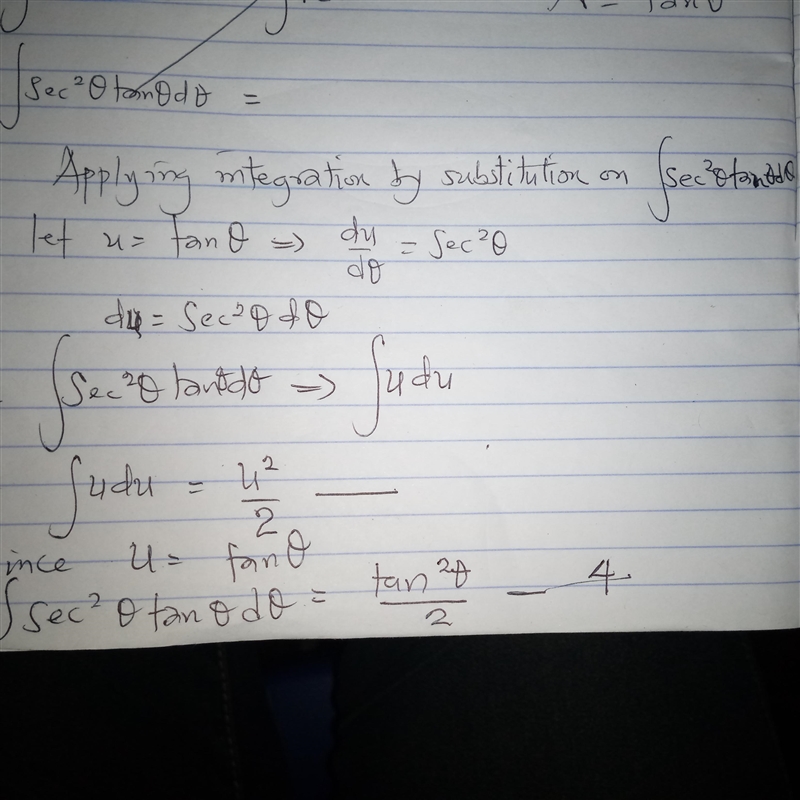 ∫sec²θtanθdθ =
Applying integration by substitution on ∫sec²θtanθdθ
let u = tanθ ⇒ du/dθ = sec²θ
du = sec²θdθ
∫sec²θtanθdθ ⇒ ∫udu
∫udu = u²/2 —
ince u = tanθ
∫sec²θtanθdθ = tan²θ/2 — 4